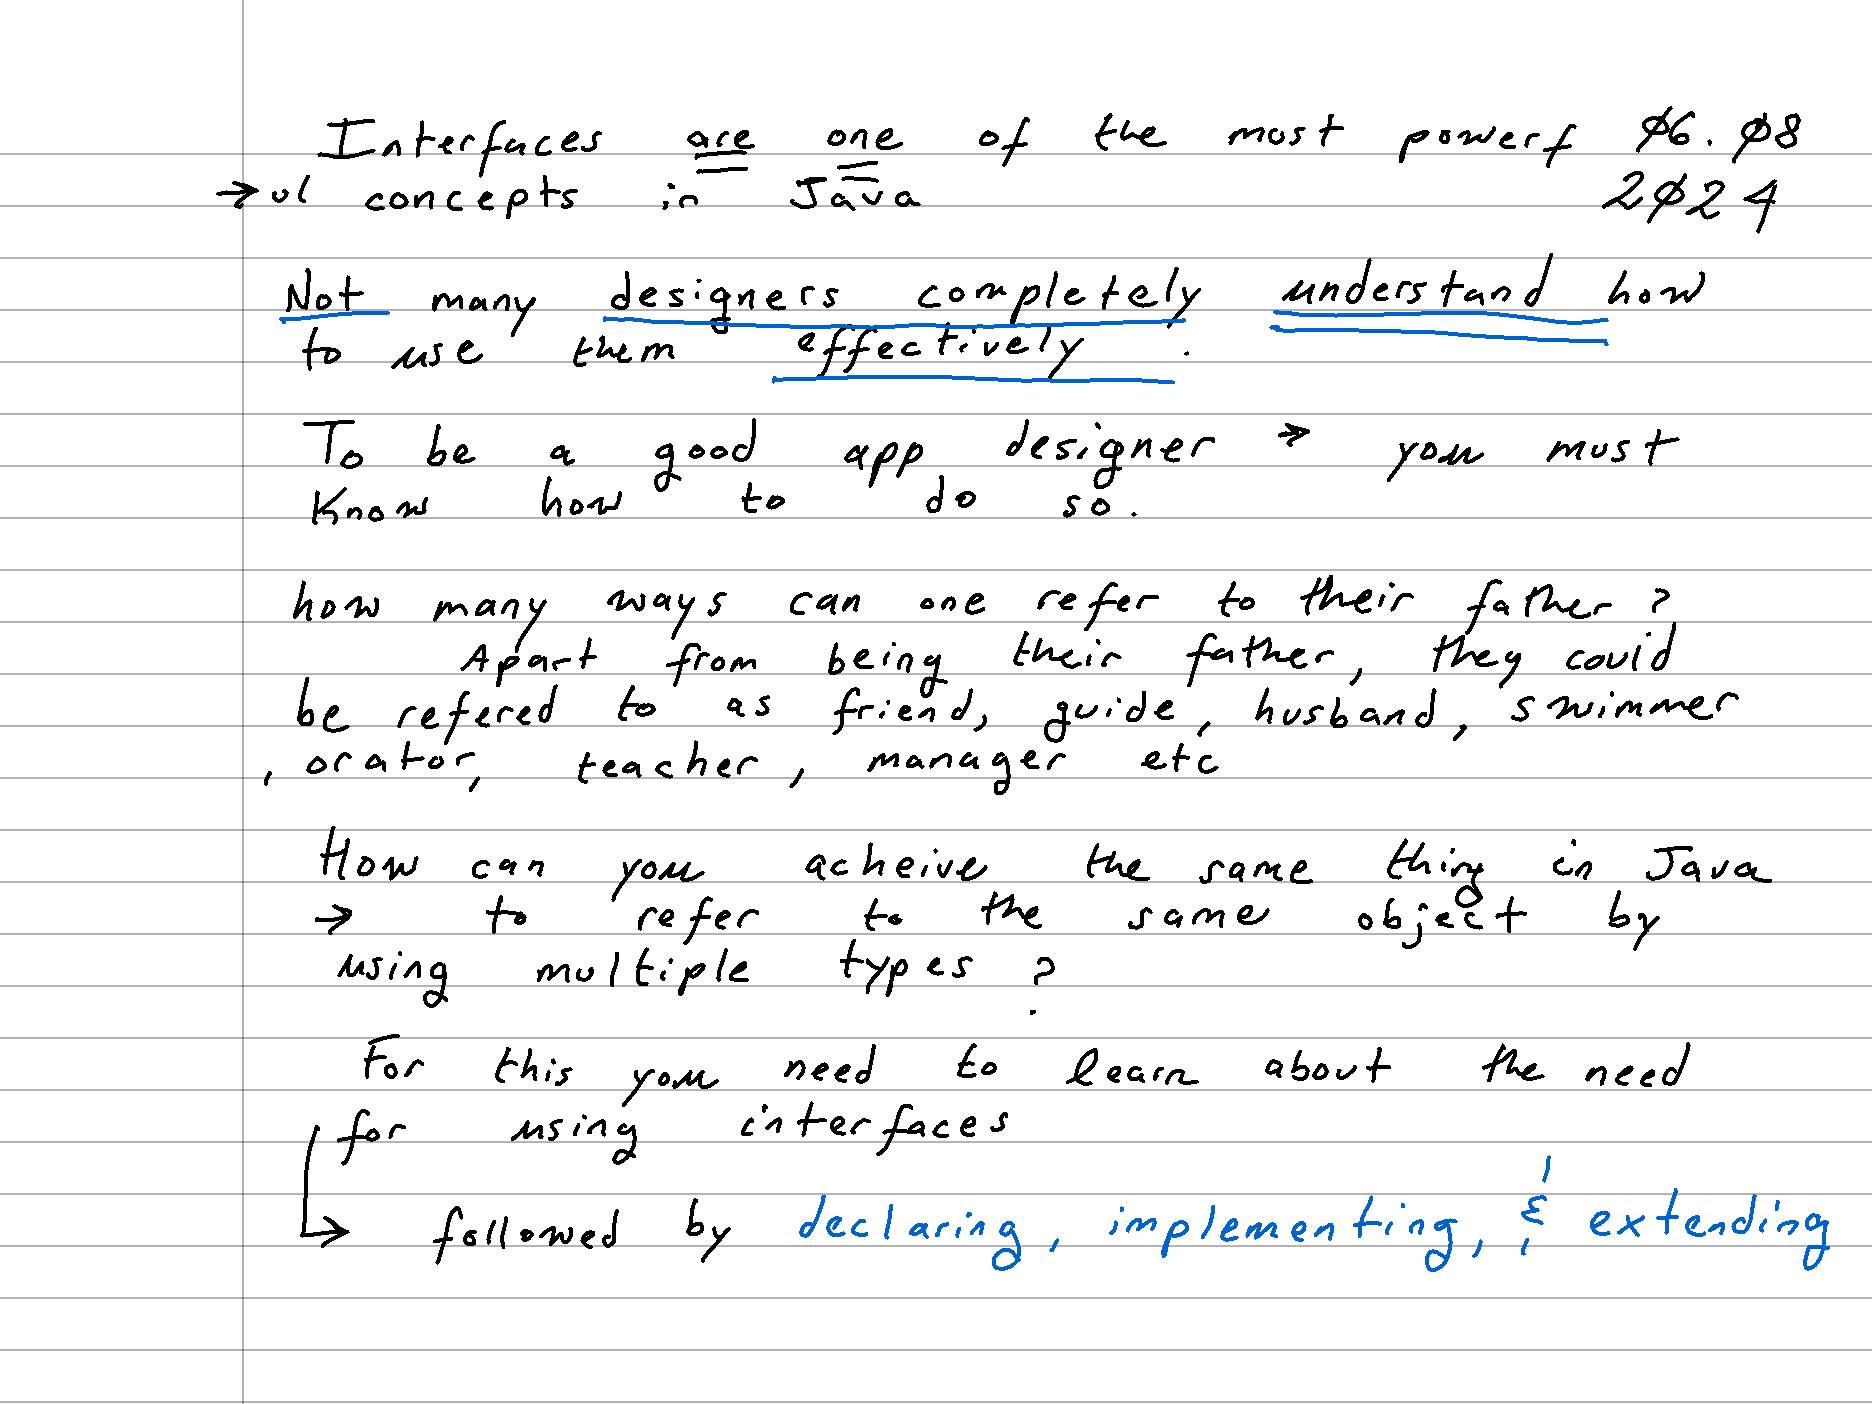 Interfaces are one of the most powerf 06.08
→ ul concepts in Java 2024
Not many designers completely understand how
to use them effectively.
To be a good app designer → you must
Know how to do so.
how many ways can one refer to their father?
Apart from being their father, they could
be refered to as friend, guide, husband, swimmer
, orator, teacher, manager etc
How can you acheive the same thing in Java
→ to refer to the same object by
using multiple types?
For this you need to learn about the need
for using interfaces
↳ followed by declaring, implementing, & extending